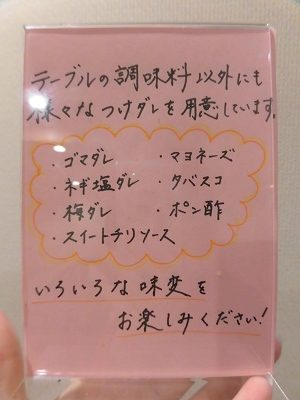 テーブルの調味料以外にも
様々なつけダレを用意しています。
・ゴマダレ ・マヨネーズ
・ネギ塩ダレ ・タバスコ
・梅ダレ ・ポン酢
・スイートチリソース
いろいろな味変を
お楽しみください!